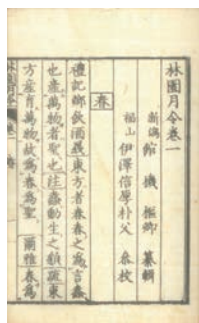 林園月令卷一
新潟 館 機 樞卿 纂輯
福山 伊澤信厚朴父 參校
春
禮記鄉飲酒義東方者春春之爲言蠢
也產萬物者聖也註蠢動生之貌疏東
方產育萬物故爲春爲聖 爾雅春爲